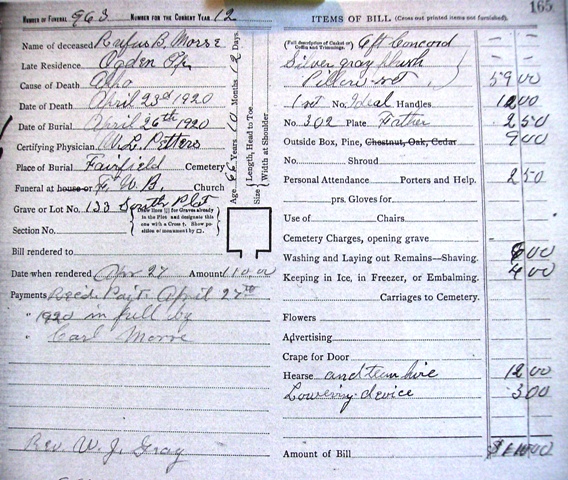 165
NUMBER OF FUNERAL 963 NUMBER FOR THE CURRENT YEAR 12
Name of deceased Rufus B. Morse
Late Residence Ogden
Cause of Death
Date of Death April 23d 1920
Date of Burial April 26th 1920
Certifying Physician W. L. Petters
Place of Burial Fairfield Cemetery
Funeral at house or F. W. B. Church
Grave or Lot No. 133 South Plot
(Show lines for Graves already in the Plot and designate this one with a Cross †. Show position of monument by □.)
Section No.
Bill rendered to
Date when rendered Apr 27 Amount 110.00
Payments Recd. April 27th
" 1920 in full by
" Carl Morse
Rev. W. J. Gray
Age 66 Years 10 Months 12 Days
Size Length, Head to Toe.
Width at Shoulder
ITEMS OF BILL (Cross out printed items not furnished).
(Full description of Casket or Coffin and Trimmings.) 6ft Concord
Silver gray plush
59 00
1 set No. Ideal Handles 12 00
No. 302 Plate Father 2 50
Outside Box, Pine, Chestnut, Oak, Cedar 9 00
No. Shroud
Personal Attendance Porters and Help. 2 50
prs. Gloves for
Use of Chairs
Cemetery Charges, opening grave
Washing and Laying out Remains—Shaving. 6 00
Keeping in Ice, in Freezer, or Embalming. 4 00
Carriages to Cemetery.
Flowers
Advertising
Crape for Door
Hearse and team hire 12 00
Lowering device 3 00
Amount of Bill $110 00